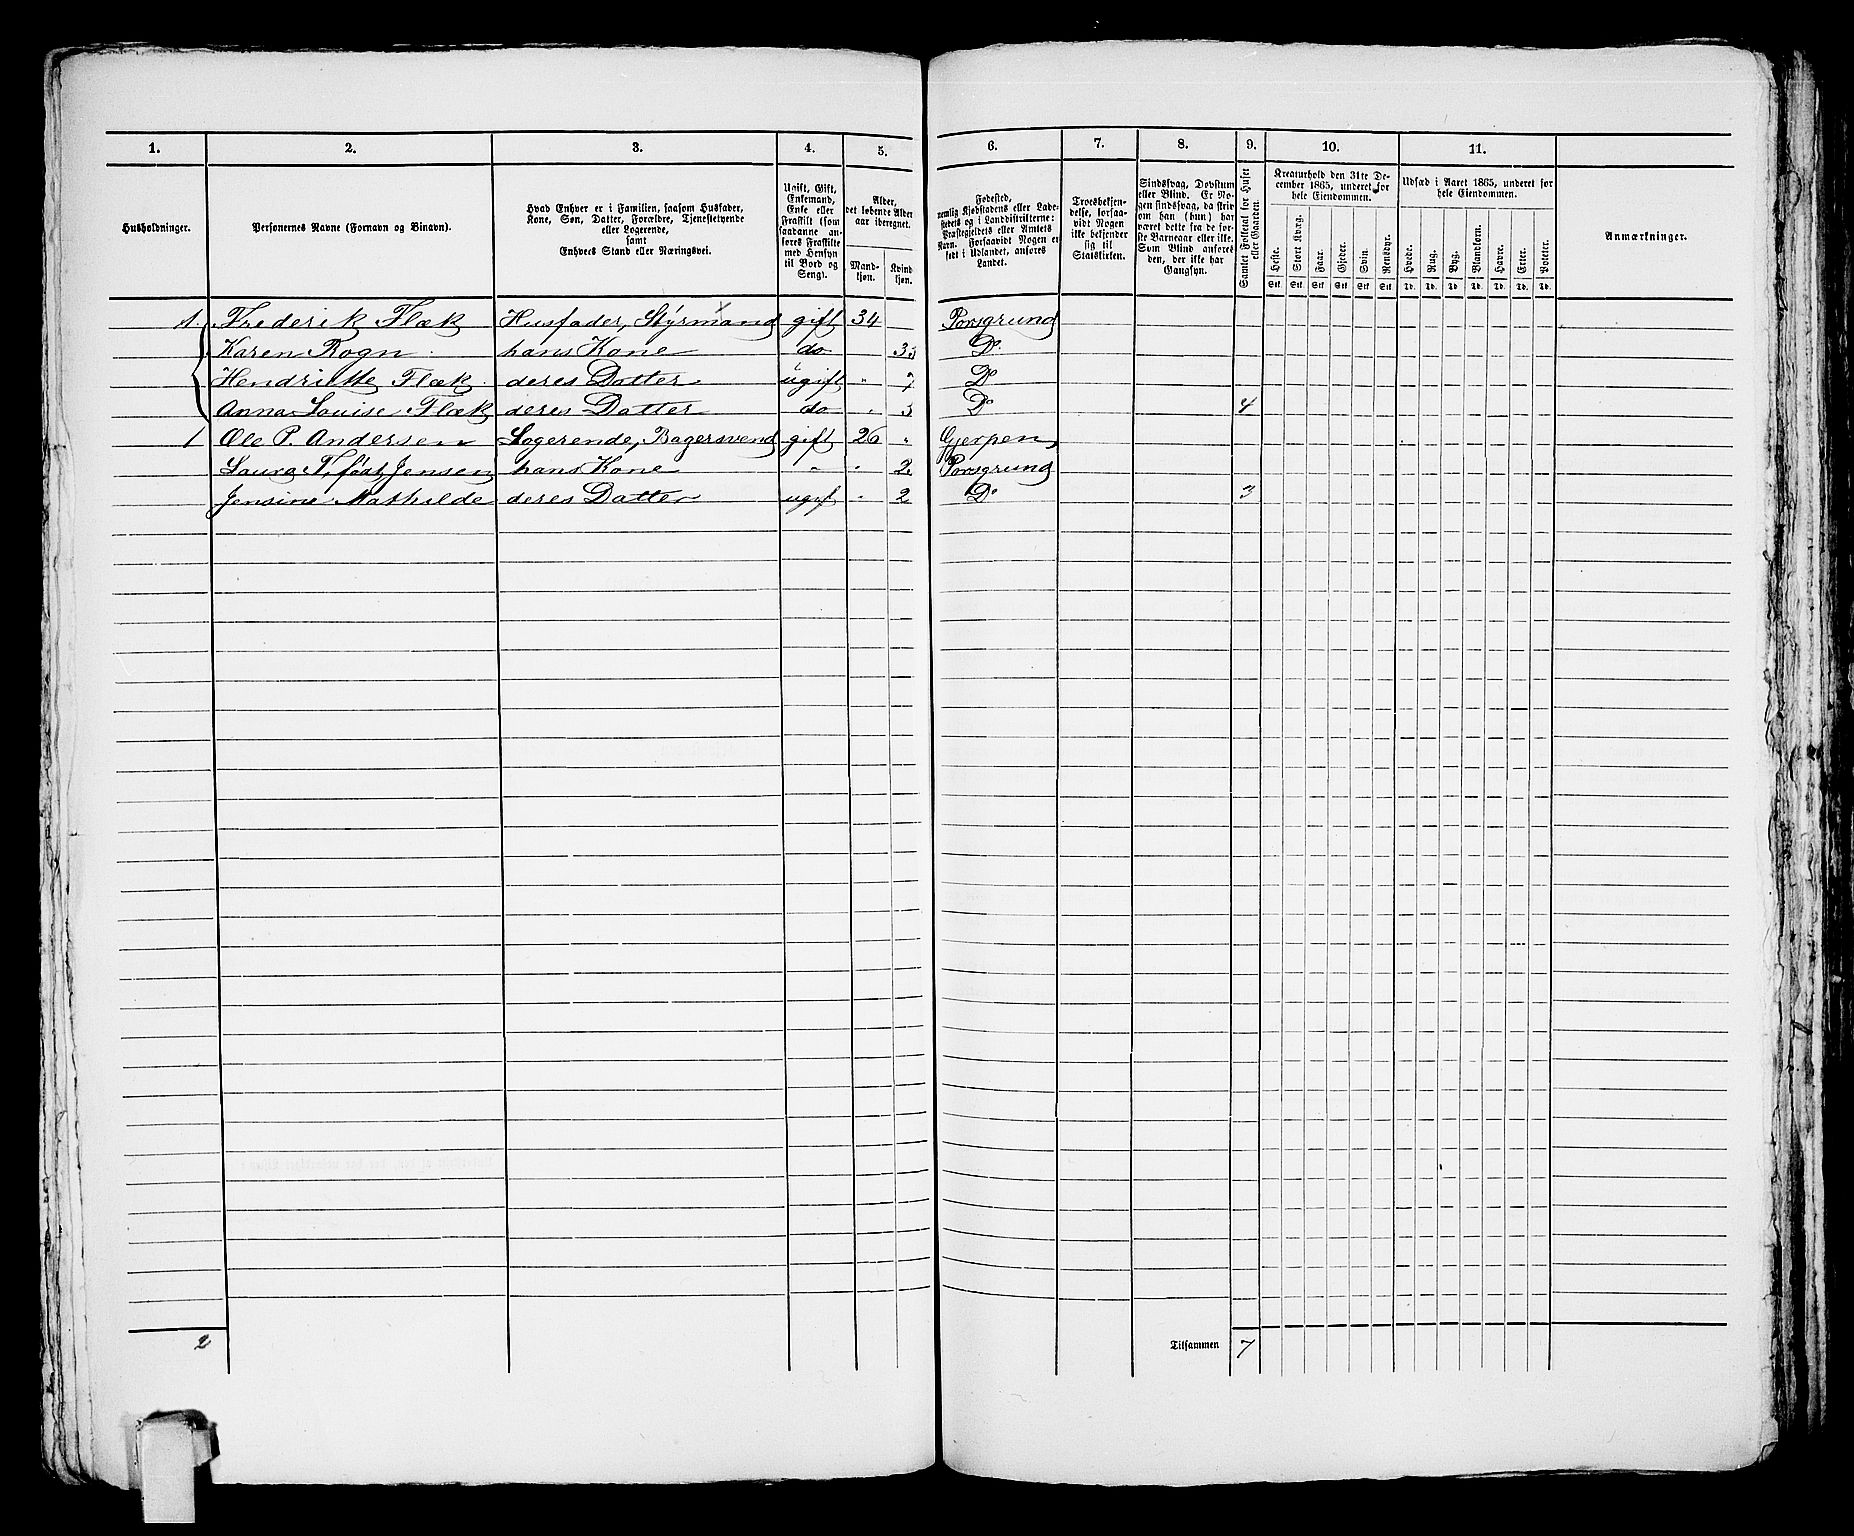 1. 2. 3. 4. 5. 6. 7. 8. 9. 10. 11.
Husholdninger.
Personernes Navne (Fornavn og Binavn).
Hvad Enhver er i Familien, saasom Husfader,
Kone, Søn, Datter, Forældre, Tjenestetyende
eller Logerende,
samt
Enhvers Stand eller Næringsvei.
Ugift, Gift,
Enkemand,
Enke eller
Fraskilt (som
saadanne an-
føres Fraskilte
med Hensyn
til Bord og
Seng).
Alder,
det løbende Alder
aar iberegnet.
Mand-
kjøn.
Kvind
kjøn.
Fødested,
nemlig Kjøbstadens eller Lade-
stedets og i Landdistrikterne:
Præstegjeldets eller Amtets
Navn. Forsaavidt Nogen er
født i Udlandet, anføres
Landet.
Troesbekjen-
delse, forsaa-
vidt Nogen
ikke bekjender
sig til
Statskirken.
Sindssvag, Døvstum
eller Blind. Er No-
gen sindssvag, da skriv
om han (hun) har
været dette fra de før-
ste Barneaar eller ikke.
Som Blind anføres
den, der ikke har
Gangsyn.
Samlet Folketal for Huset
eller Gaarden.
Kreaturhold den 31te De-
cember 1865, underet for
hele Eiendommen.
Heste. Stort Kvæg. Faar. Gjeder. Svin. Rensdyr.
Stk. Stk. Stk. Stk. Stk. Stk.
Udsæd i Aaret 1865, underet for
hele Eiendommen.
Hvede. Rug. Byg. Blandkorn. Havre. Erter. Poteter.
Td. Td. Td. Td. Td. Td. Td.
Anmærkninger.
1. Frederik Flæk Husfader, Styrmand gift 34 Porsgrund
Karen Rogn hans Kone do 35 Do
Hendriette Flæk deres Datter ugift " 7 Do
Anna Louise Flæk deres Datter do " 3 Do 4
1 Ole P. Andersen Logerende, Bagersvend gift 26 " Gjerpen
Laura T. født Jensen hans Kone " " 2 Porsgrund
Jensine Mathilde deres Datter ugift " 2 Do 3
2 Tilsammen 7